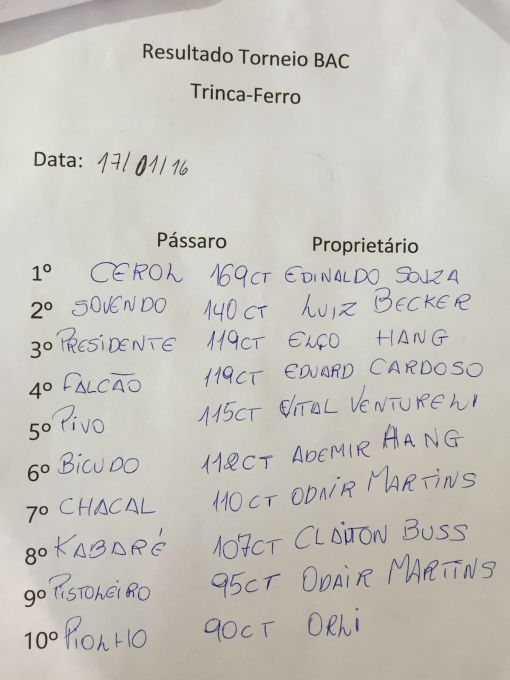 Resultado Torneio BAC
Trinca-Ferro
Data: 17/01/16
Pássaro Proprietário
1º CEROL 169CT EDINALDO SOUZA
2º SOVENDO 140CT LUIZ BECKER
3º PRESIDENTE 119CT ELÇO HANG
4º FALCÃO 119CT EDUARD CARDOSO
5º PIVO 115CT VITAL VENTURELI
6º BICUDO 112CT ADEMIR HANG
7º CHACAL 110CT ODAIR MARTINS
8º KABARÉ 107CT CLAITON BUSS
9º PISTOLEIRO 95CT ODAIR MARTINS
10º PIOLHO 90CT ORLI